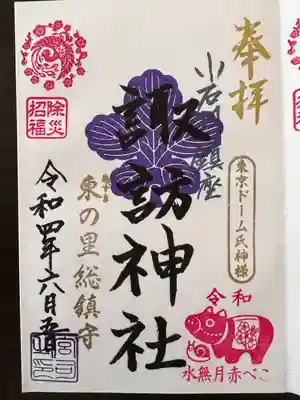 奉拝
小石川鎮座
東京ドーム氏神様
諏訪神社
東の里総鎮守
除災
招福
令和四年六月五日
令和
水無月赤べこ